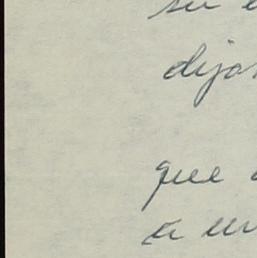 su
dijo
que
a un